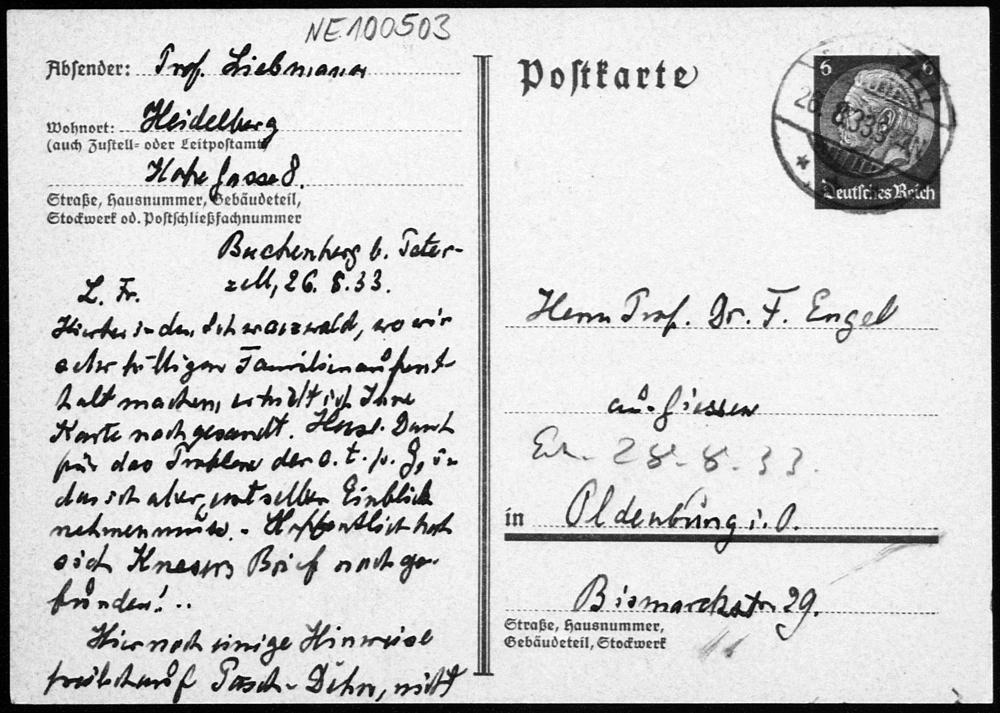 NE100503
Absender: Prof. Liebmann
Wohnort: Heidelberg
(auch Zustell- oder Leitpostamt)
Hohe Gasse 8.
Straße, Hausnummer, Gebäudeteil,
Stockwerk od. Postschließfachnummer
Buchenberg b. Peter-
zell, 26. 8. 33.
L. Fr.
Hierher in den Schwarzwald, wo wir
Familienaufent-
halt machen, erhielt ich Ihre
Karte nachgesandt. Herzl. Dank
für das Problem der o. t. p. G, in
das ich aber erst selber Einblick
nehmen muss. - Hoffentlich hat
sich Knesers Brief noch ge-
funden! ..
Hier noch einige Hinweise
Pasch-Dehn, nicht
Postkarte
6 6
26.8.33
Deutsches Reich
Herrn Prof. Dr. F. Engel
aus Giessen
Erh. 28.8.33.
in Oldenburg i. O.
Bismarckstr 29.
Straße, Hausnummer,
Gebäudeteil, Stockwerk